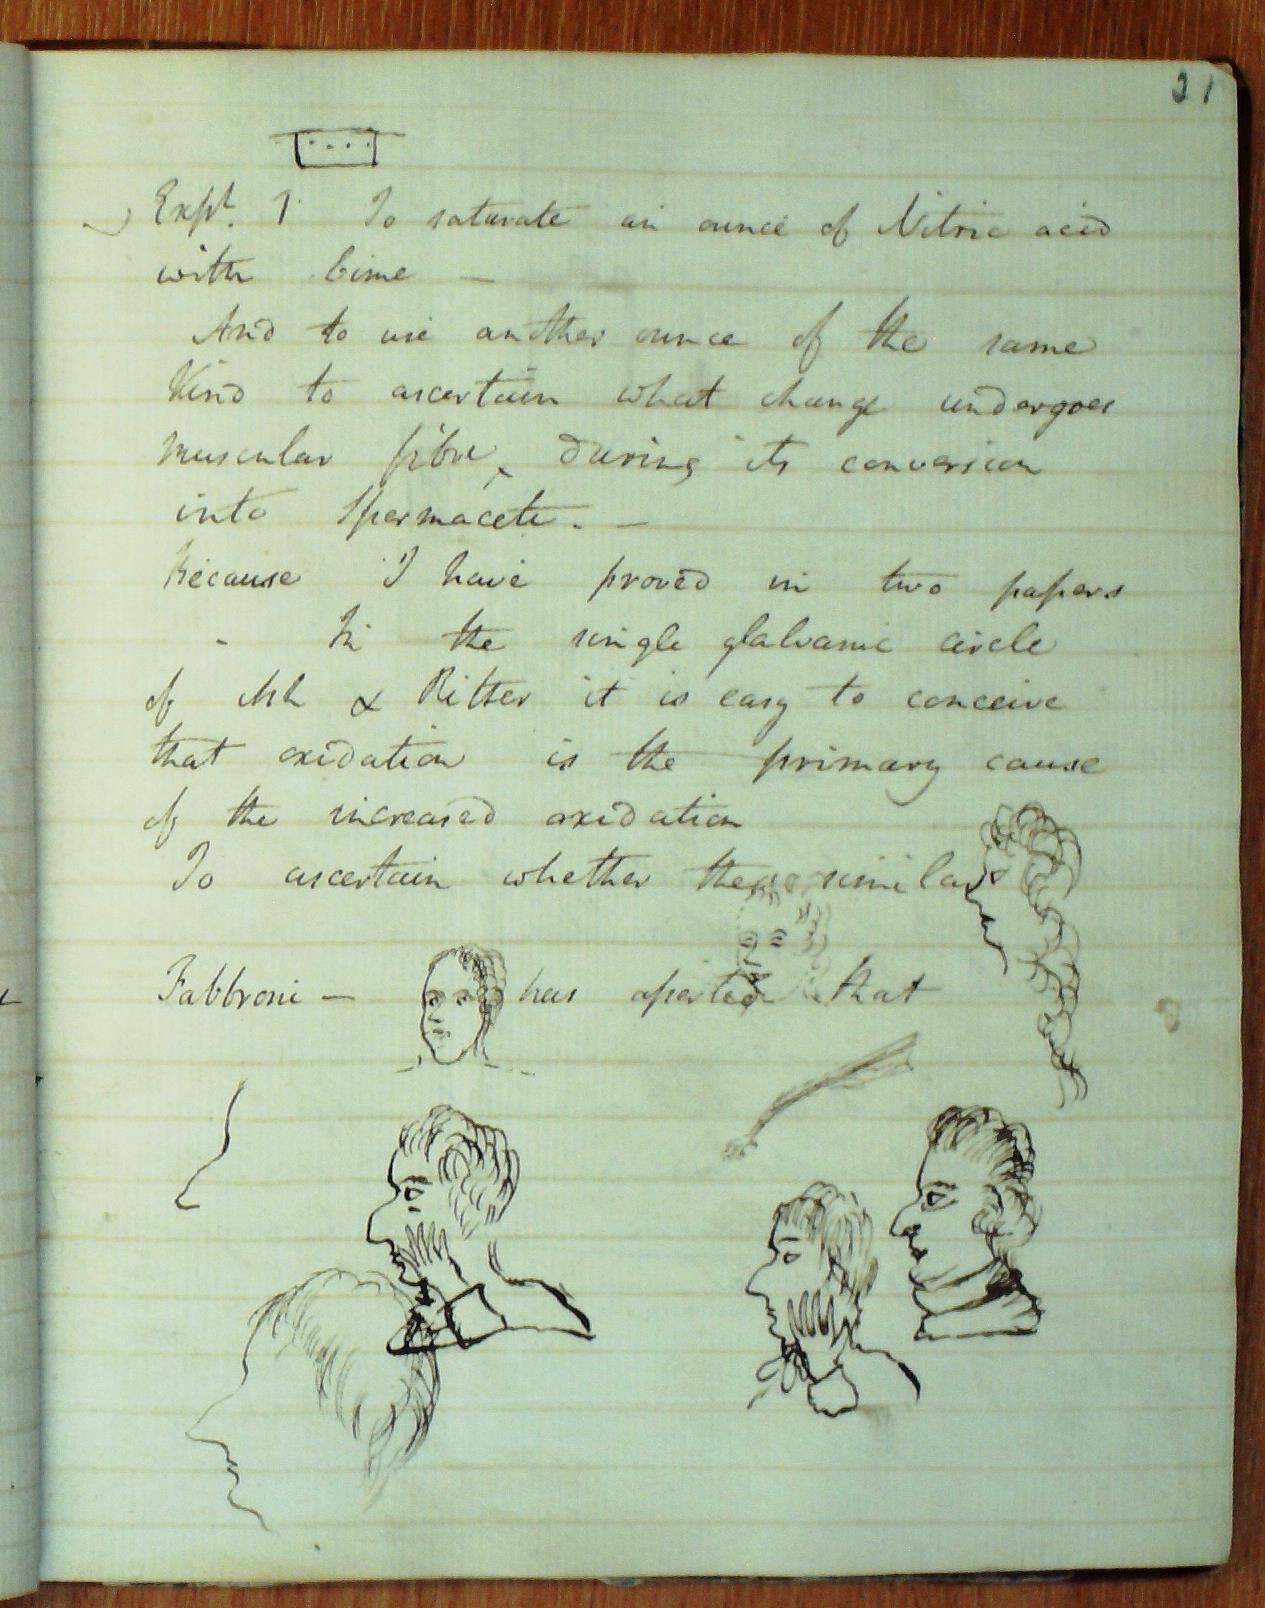 21
Expt. 1 To saturate an ounce of Nitric acid
with lime —
And to use another ounce of the same
Kind to ascertain what change undergoes
muscular fibre, during its conversion
into Spermaceti. —
Because I have proved in two papers
- In the single galvanic circle
of Ash & Ritter it is easy to conceive
that oxidation is the primary cause
of the increased oxidation
To ascertain whether the similar
Fabbroni — has asserted that